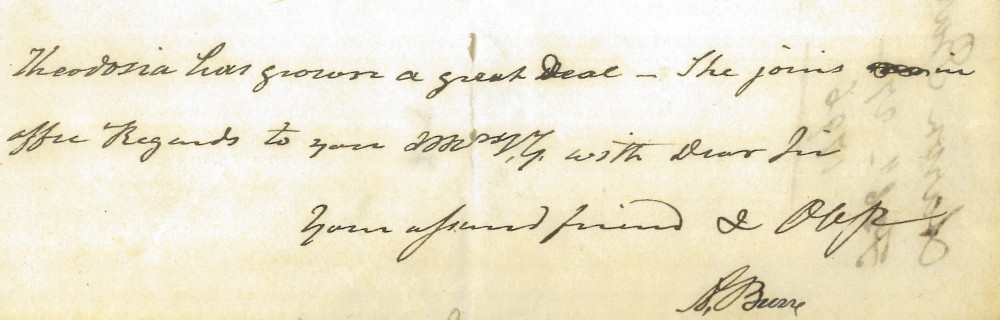 Theodosia has grown a great Deal – She joins in
affec Regards to you Mrs V.G. with Dear Sir
Your assured friend & Obt
A. Burr